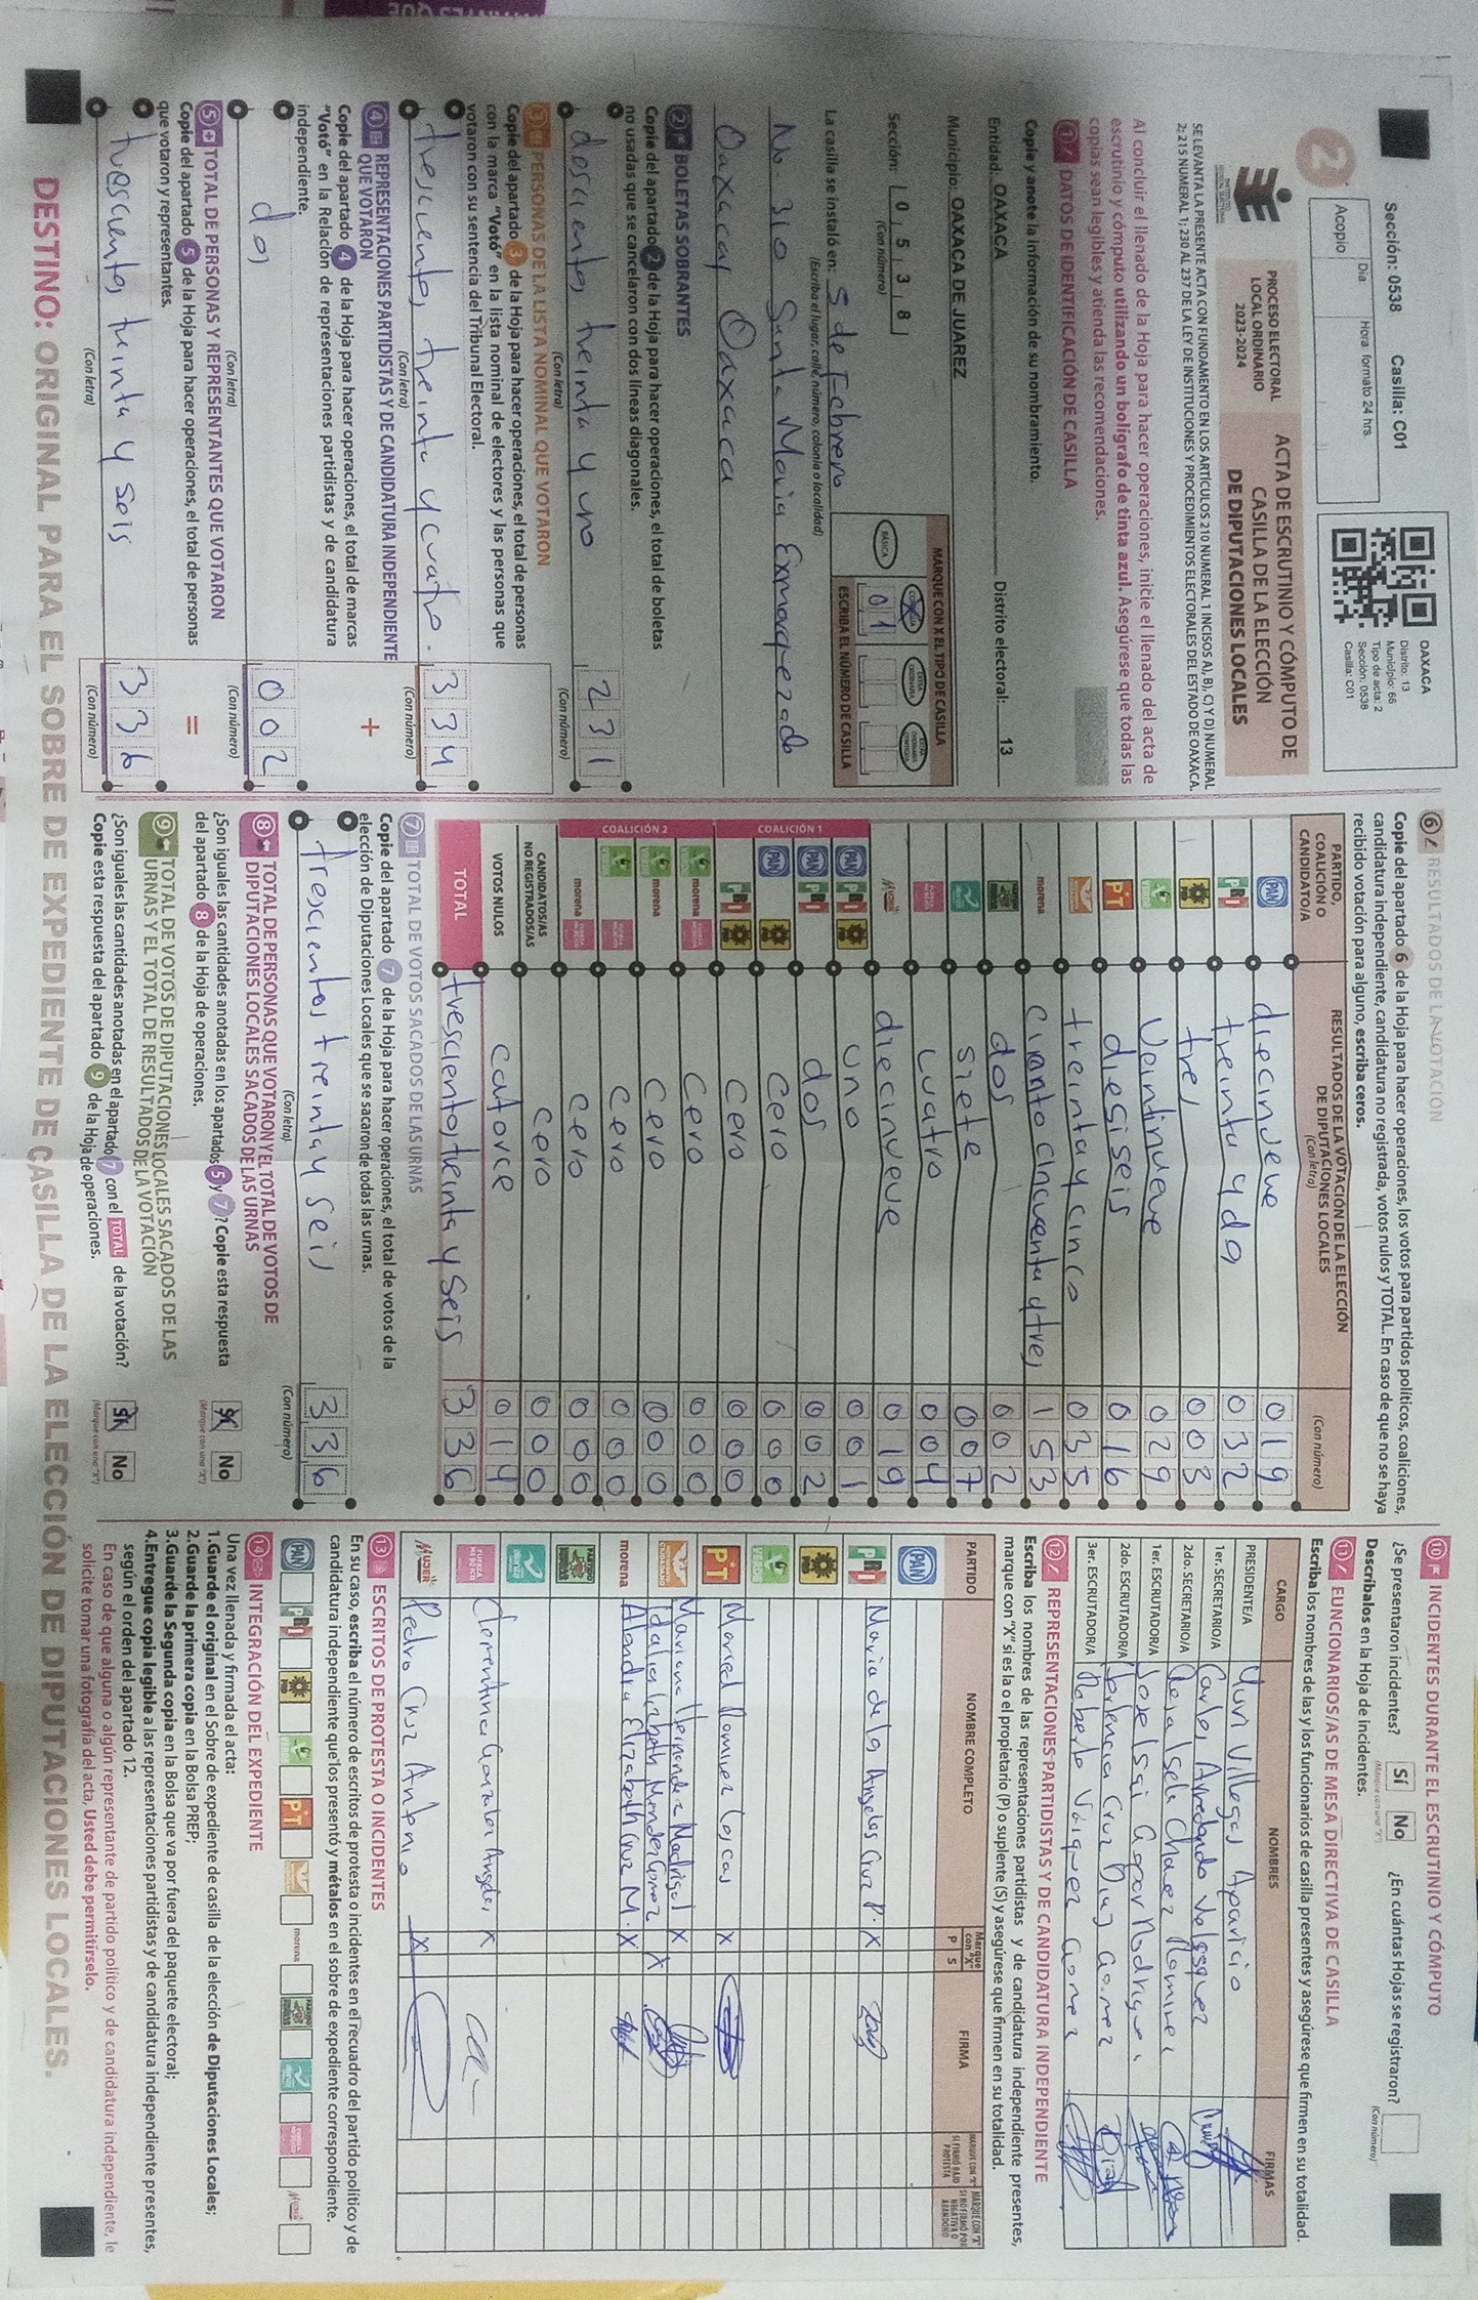 Sección: 0538 Casilla: C01
Día Hora formato 24 hrs
Acopio
2
PROCESO ELECTORAL
LOCAL ORDINARIO
2023-2024
ACTA DE ESCRUTINIO Y CÓMPUTO DE
CASILLA DE LA ELECCIÓN
DE DIPUTACIONES LOCALES
OAXACA
Distrito: 13
Municipio: 66
Tipo de acta: 2
Sección: 0538
Casilla: C01
SE LEVANTA LA PRESENTE ACTA CON FUNDAMENTO EN LOS ARTÍCULOS 210 NUMERAL 1 INCISOS A), B), C) Y D) NUMERAL
2; 215 NUMERAL 1; 230 AL 237 DE LA LEY DE INSTITUCIONES Y PROCEDIMIENTOS ELECTORALES DEL ESTADO DE OAXACA.
Al concluir el llenado de la Hoja para hacer operaciones, inicie el llenado del acta de
escrutinio y cómputo utilizando un bolígrafo de tinta azul. Asegúrese que todas las
copias sean legibles y atienda las recomendaciones.
1 DATOS DE IDENTIFICACIÓN DE CASILLA
Copie y anote la información de su nombramiento.
Entidad: OAXACA Distrito electoral: 13
Municipio: OAXACA DE JUAREZ
Sección: 0 5 3 8
(Con número)
MARQUE CON X EL TIPO DE CASILLA
BÁSICA
ESCRIBA EL NÚMERO DE CASILLA
0 1
La casilla se instaló en: 5 de Febrero
(Escriba el lugar, calle, número, colonia o localidad)
No. 310 Santa Maria Exmarquezado
Oaxaca, Oaxaca
2 BOLETAS SOBRANTES
Copie del apartado 2 de la Hoja para hacer operaciones, el total de boletas
no usadas que se cancelaron con dos líneas diagonales.
doscientos treinta y uno 231
(Con letra) (Con número)
3 PERSONAS DE LA LISTA NOMINAL QUE VOTARON
Copie del apartado 3 de la Hoja para hacer operaciones, el total de personas
con la marca "Votó" en la lista nominal de electores y las personas que
votaron con su sentencia del Tribunal Electoral.
trescientos treinta y cuatro. 334
(Con letra) (Con número)
4 REPRESENTACIONES PARTIDISTAS Y DE CANDIDATURA INDEPENDIENTE
QUE VOTARON
+
Copie del apartado 4 de la Hoja para hacer operaciones, el total de marcas
"Votó" en la Relación de representaciones partidistas y de candidatura
independiente.
dos 002
(Con letra) (Con número)
5 TOTAL DE PERSONAS Y REPRESENTANTES QUE VOTARON
=
Copie del apartado 5 de la Hoja para hacer operaciones, el total de personas
que votaron y representantes.
trescientos treinta y seis 336
(Con letra) (Con número)
6 RESULTADOS DE LA VOTACIÓN
Copie del apartado 6 de la Hoja para hacer operaciones, los votos para partidos políticos, coaliciones,
candidatura independiente, candidatura no registrada, votos nulos y TOTAL. En caso de que no se haya
recibido votación para alguno, escriba ceros.
PARTIDO,
COALICIÓN O
CANDIDATO/A
RESULTADOS DE LA VOTACIÓN DE LA ELECCIÓN
DE DIPUTACIONES LOCALES
(Con letra)
(Con número)
PAN diecinueve 019
PRI treinta y dos 032
PRD tres 003
VERDE Veintinueve 029
PT diesiseis 016
treinta y cinco 035
morena ciento cincuenta y tres 153
dos 002
siete 007
cuatro 004
MUJER diecinueve 019
COALICIÓN 1
PAN PRI PRD uno 001
PAN PRI dos 002
PAN PRD cero 000
PRI PRD cero 000
COALICIÓN 2
VERDE morena cero 000
VERDE morena cero 000
VERDE cero 000
morena cero 000
CANDIDATOS/AS
NO REGISTRADOS/AS cero 000
VOTOS NULOS catorce 014
TOTAL trescientos treinta y seis 336
7 TOTAL DE VOTOS SACADOS DE LAS URNAS
Copie del apartado 7 de la Hoja para hacer operaciones, el total de votos de la
elección de Diputaciones Locales que se sacaron de todas las urnas.
trescientos treinta y seis 336
(Con letra) (Con número)
8 TOTAL DE PERSONAS QUE VOTARON Y EL TOTAL DE VOTOS DE
DIPUTACIONES LOCALES SACADOS DE LAS URNAS
¿Son iguales las cantidades anotadas en los apartados 5 y 7? Copie esta respuesta
del apartado 8 de la Hoja de operaciones.
Sí No
(Marque con una "X")
9 TOTAL DE VOTOS DE DIPUTACIONES LOCALES SACADOS DE LAS
URNAS Y EL TOTAL DE RESULTADOS DE LA VOTACIÓN
¿Son iguales las cantidades anotadas en el apartado 7 con el TOTAL de la votación?
Copie esta respuesta del apartado 9 de la Hoja de operaciones.
Sí No
(Marque con una "X")
10 INCIDENTES DURANTE EL ESCRUTINIO Y CÓMPUTO
¿Se presentaron incidentes? Sí No ¿En cuántas Hojas se registraron?
(Marque con una "X") (Con número)
Descríbalos en la Hoja de incidentes.
11 FUNCIONARIOS/AS DE MESA DIRECTIVA DE CASILLA
Escriba los nombres de las y los funcionarios de casilla presentes y asegúrese que firmen en su totalidad.
CARGO NOMBRES FIRMAS
PRESIDENTE/A Yun Villegas Aparicio
1er. SECRETARIO/A Carlos Arredondo Velasquez
2do. SECRETARIO/A
1er. ESCRUTADOR/A Jose Isai
2do. ESCRUTADOR/A Cruz Diaz Gomez
3er. ESCRUTADOR/A Roberto Vásquez Gomez
12 REPRESENTACIONES PARTIDISTAS Y DE CANDIDATURA INDEPENDIENTE
Escriba los nombres de las representaciones partidistas y de candidatura independiente presentes,
marque con "X" si es la o el propietario (P) o suplente (S) y asegúrese que firmen en su totalidad.
PARTIDO NOMBRE COMPLETO Marque con "X" P S FIRMA MARQUE CON "X" SI FIRMÓ BAJO PROTESTA MARQUE CON "X" SI NO FIRMÓ POR NEGATIVA O ABANDONO
PAN
PRI Maria de los Angeles Cruz P. X
PRD
VERDE
PT Marcel Ramirez Lascas X
Mariana Hernandez Madrigal X
Idalia Lizbeth Mendez Gomez X
morena Alondra Elizabeth Cruz M. X
Clementina Gonzalez Angeles X
MUJER Pedro Cruz Antonio X
13 ESCRITOS DE PROTESTA O INCIDENTES
En su caso, escriba el número de escritos de protesta o incidentes en el recuadro del partido político y de
candidatura independiente que los presentó y métalos en el sobre de expediente correspondiente.
PAN PRI PRD VERDE PT morena MUJER
14 INTEGRACIÓN DEL EXPEDIENTE
Una vez llenada y firmada el acta:
1.Guarde el original en el Sobre de expediente de casilla de la elección de Diputaciones Locales;
2.Guarde la primera copia en la Bolsa PREP;
3.Guarde la Segunda copia en la Bolsa que va por fuera del paquete electoral;
4.Entregue copia legible a las representaciones partidistas y de candidatura independiente presentes,
según el orden del apartado 12.
En caso de que alguna o algún representante de partido político y de candidatura independiente, le
solicite tomar una fotografía del acta, Usted debe permitírselo.
DESTINO: ORIGINAL PARA EL SOBRE DE EXPEDIENTE DE CASILLA DE LA ELECCIÓN DE DIPUTACIONES LOCALES.